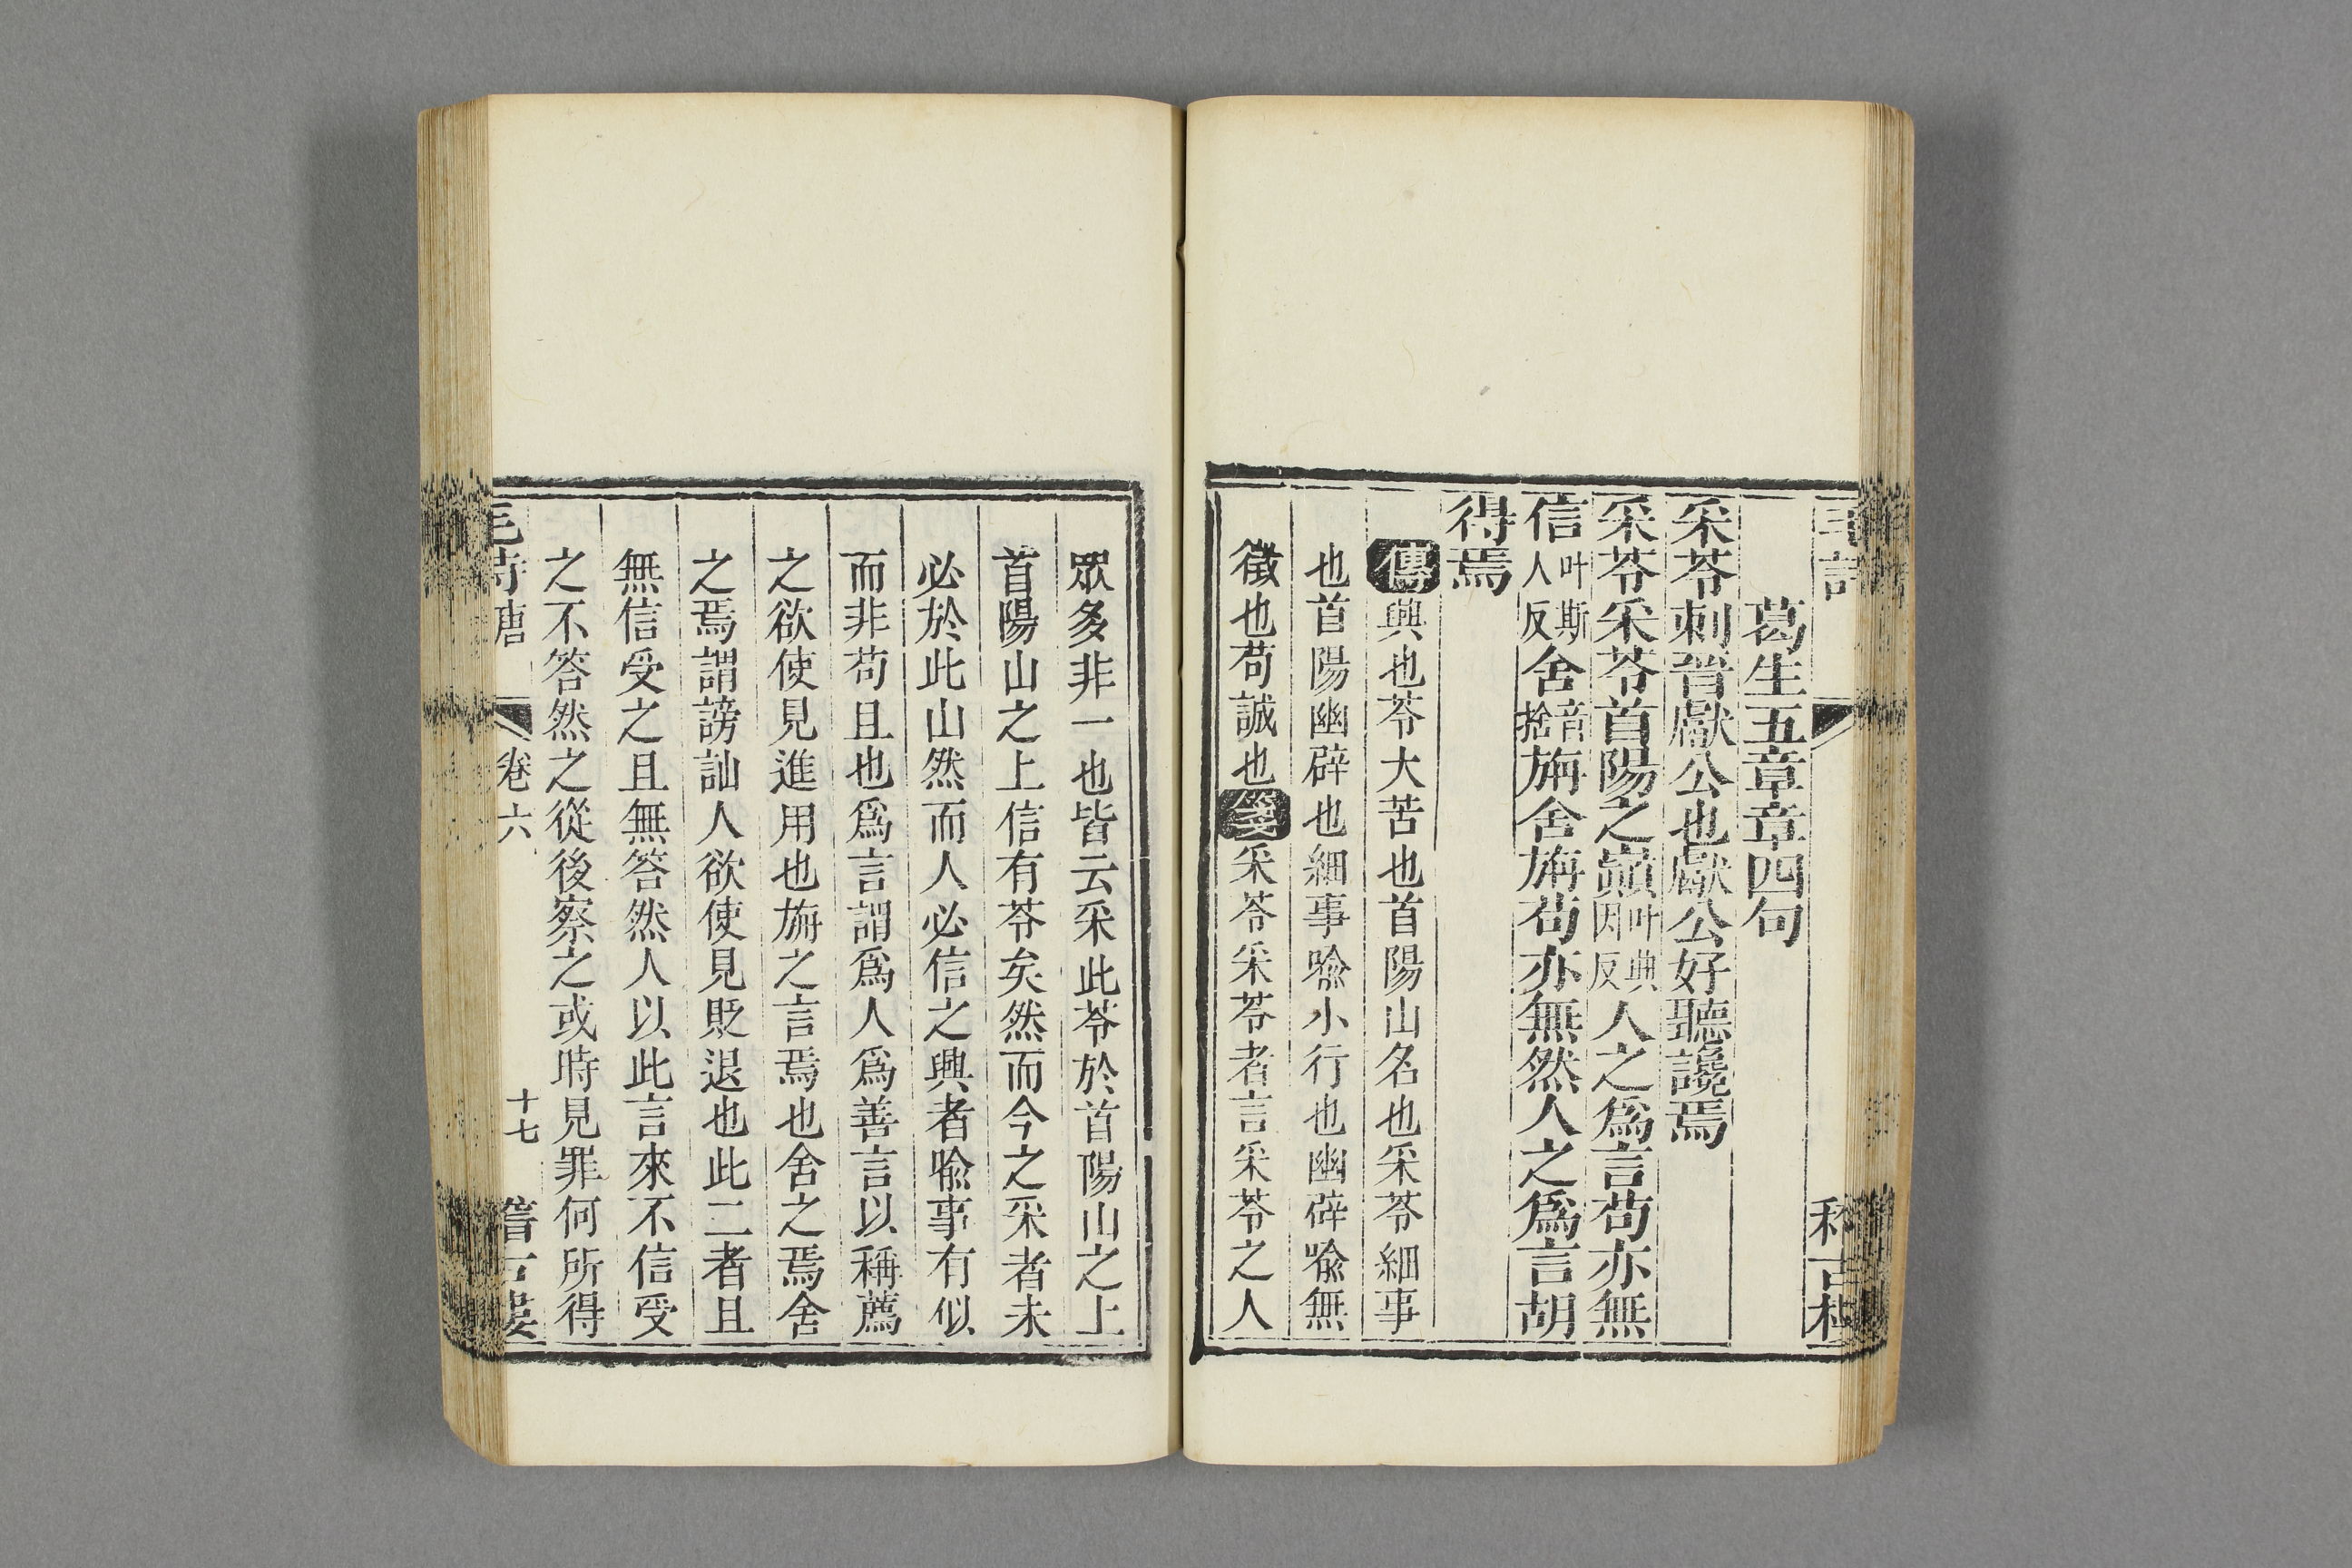 葛生五章章四句
采苓刺晉獻公也獻公好聽讒焉
采苓采苓首陽之巓叶典因反人之爲言苟亦無
信叶斯人反舍音捨旃舍旃苟亦無然人之爲言胡
得焉
傳興也苓大苦也首陽山名也采苓細事
也首陽幽辟也細事喻小行也幽辟喻無
徵也苟誠也箋采苓采苓者言采苓之人
眾多非一也皆云采此苓於首陽山之上
首陽山之上信有苓矣然而今之采者未
必於此山然而人必信之興者喻事有似
而非苟且也爲言謂爲人爲善言以稱薦
之欲使見進用也旃之言焉也舍之焉舍
之焉謂謗訕人欲使見貶退也此二者且
無信受之且無答然人以此言來不信受
之不答然之從後察之或時見罪何所得
毛詩唐 卷六 十七